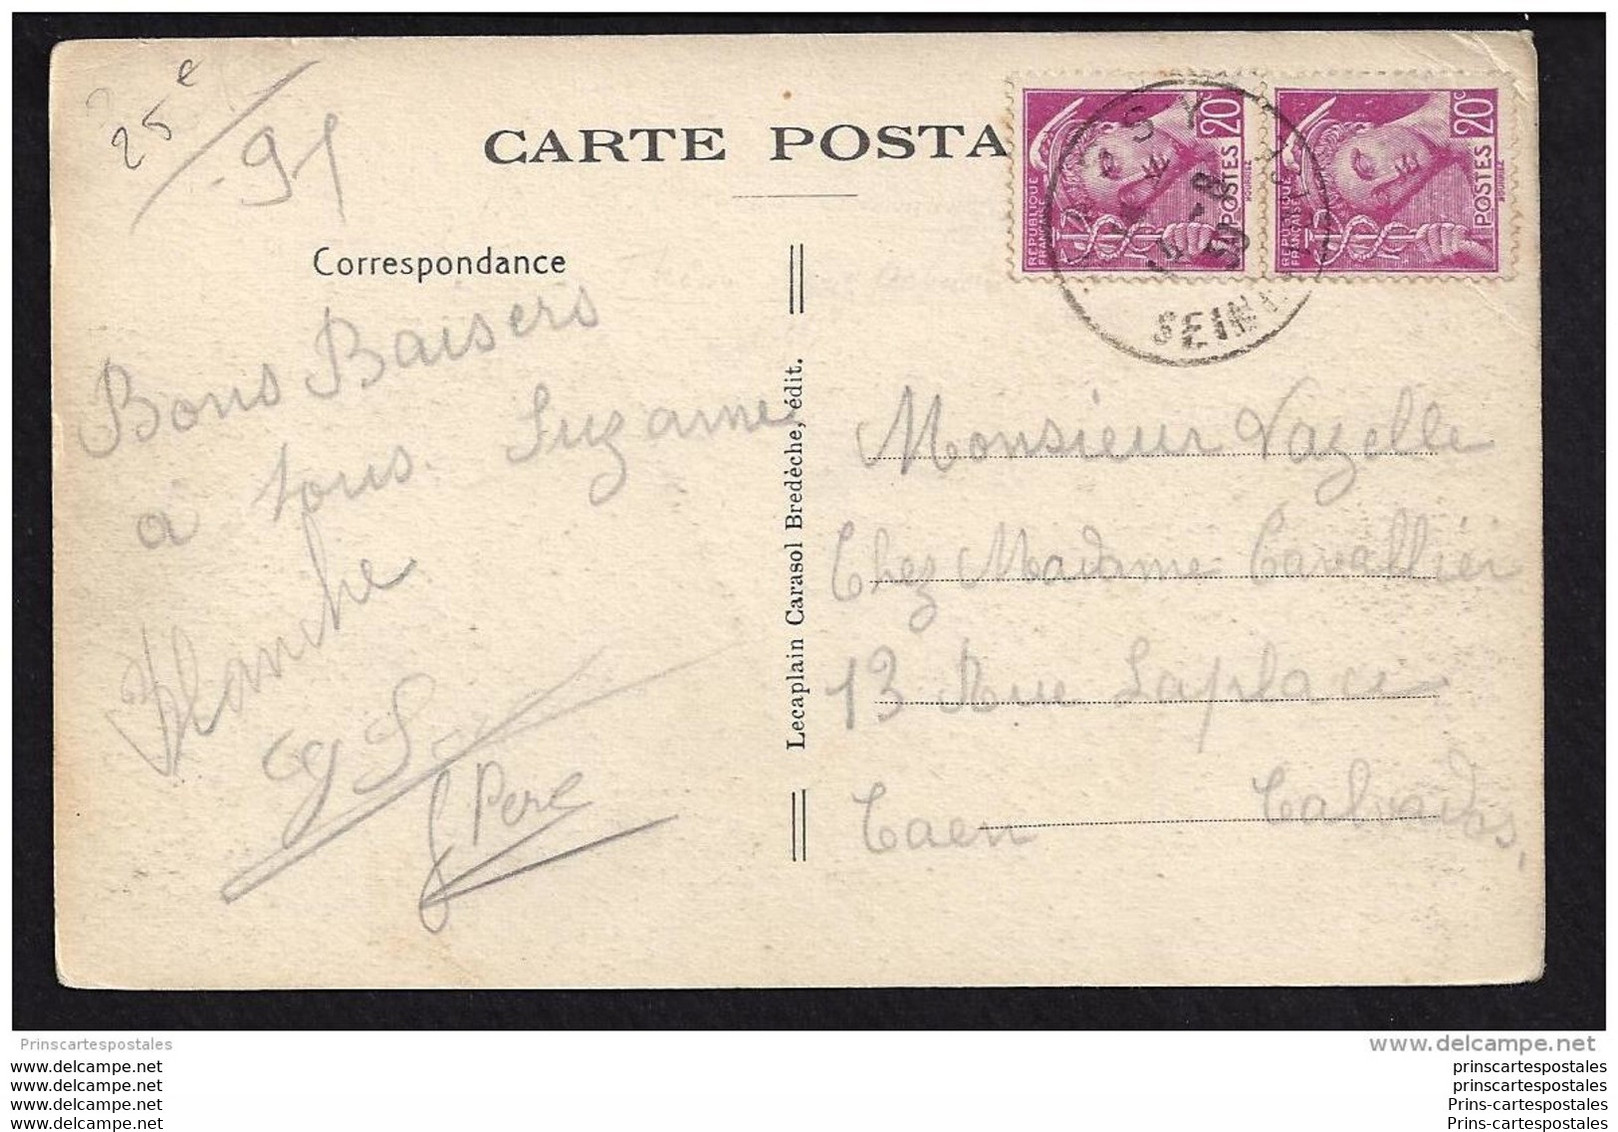 25€
91
CARTE POSTA
20c
POSTES
REPUBLIQUE
FRANCAISE
20c
POSTES
REPUBLIQUE
FRANCAISE
SEINE
Correspondance
Bons Baisers
a tous. Suzanne
Blanche
Pere
Lecaplain Carasol Bredèche, édit.
Monsieur Vazelle
Chez Madame Cavallier
13 Rue Laplace
Caen Calvados.
Prinscartespostales
www.delcampe.net
www.delcampe.net
www.delcampe.net
www.delcampe.net
www.delcampe.net
prinscartespostales
prinscartespostales
Prins-cartespostales
Prins-cartespostales